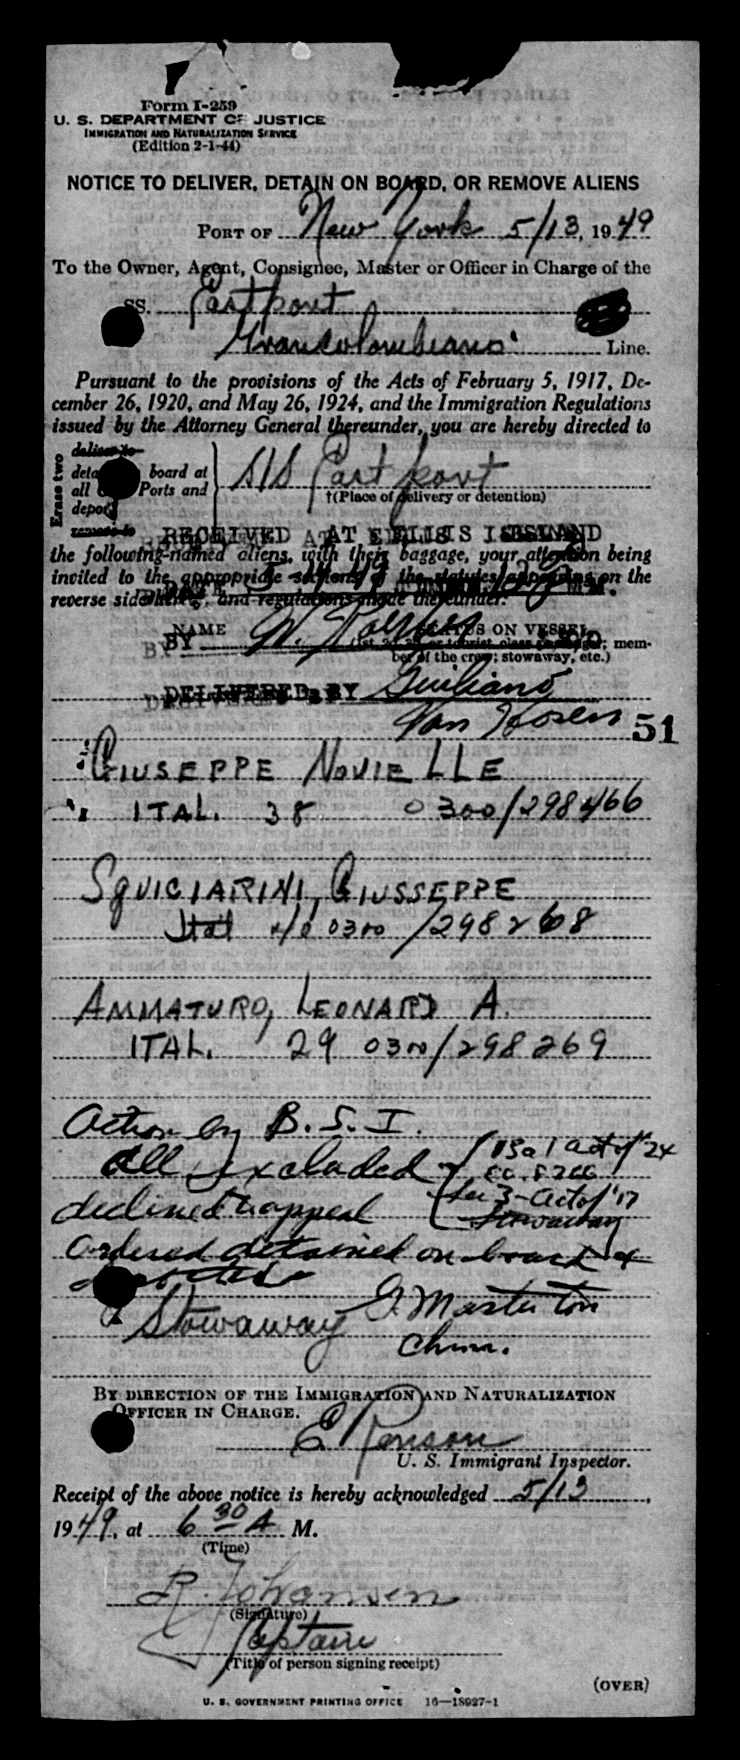 Form I-259
U. S. DEPARTMENT OF JUSTICE
IMMIGRATION AND NATURALIZATION SERVICE
(Edition 2-1-44)
NOTICE TO DELIVER, DETAIN ON BOARD, OR REMOVE ALIENS
PORT OF New York 5/13, 1949
To the Owner, Agent, Consignee, Master or Officer in Charge of the
SS. Eastport
Grancolombiano Line.
Pursuant to the provisions of the Acts of February 5, 1917, De-
cember 26, 1920, and May 26, 1924, and the Immigration Regulations
issued by the Attorney General thereunder, you are hereby directed to
Erase two
deliver to
board at
all Ports and
remove to
S/S Eastport
†(Place of delivery or detention)
RECEIVED AT ELLIS ISLAND
the following-named aliens, with their baggage, your attention being
invited to the appropriate sections of the statutes appearing on the
reverse side and regulations made thereunder.
NAME STATUS ON VESSEL
BY W.
mem-
ber of the crew; stowaway, etc.)
DELIVERED BY Giuliano
Van Hosen 51
GIUSEPPE NOVIELLE
ITAL. 38 0300/298466
SQUICIARINI, GIUSSEPPE
Ital 0300/298268
AMMATURO, LEONARD A.
ITAL. 29 0300/298269
Action by B. S. I.
All excluded 13a1 act of '24
declined appeal Sec 3-Act of '17
Stowaway
Ordered detained on board &
Stowaway G. Masterton
Chm.
BY DIRECTION OF THE IMMIGRATION AND NATURALIZATION
OFFICER IN CHARGE.
E
U. S. Immigrant Inspector.
Receipt of the above notice is hereby acknowledged 5/13,
1949, at 6 30 A M.
(Time)
R. Johansen
(Signature)
Captain
(Title of person signing receipt)
(OVER)
U. S. GOVERNMENT PRINTING OFFICE 16-18927-1